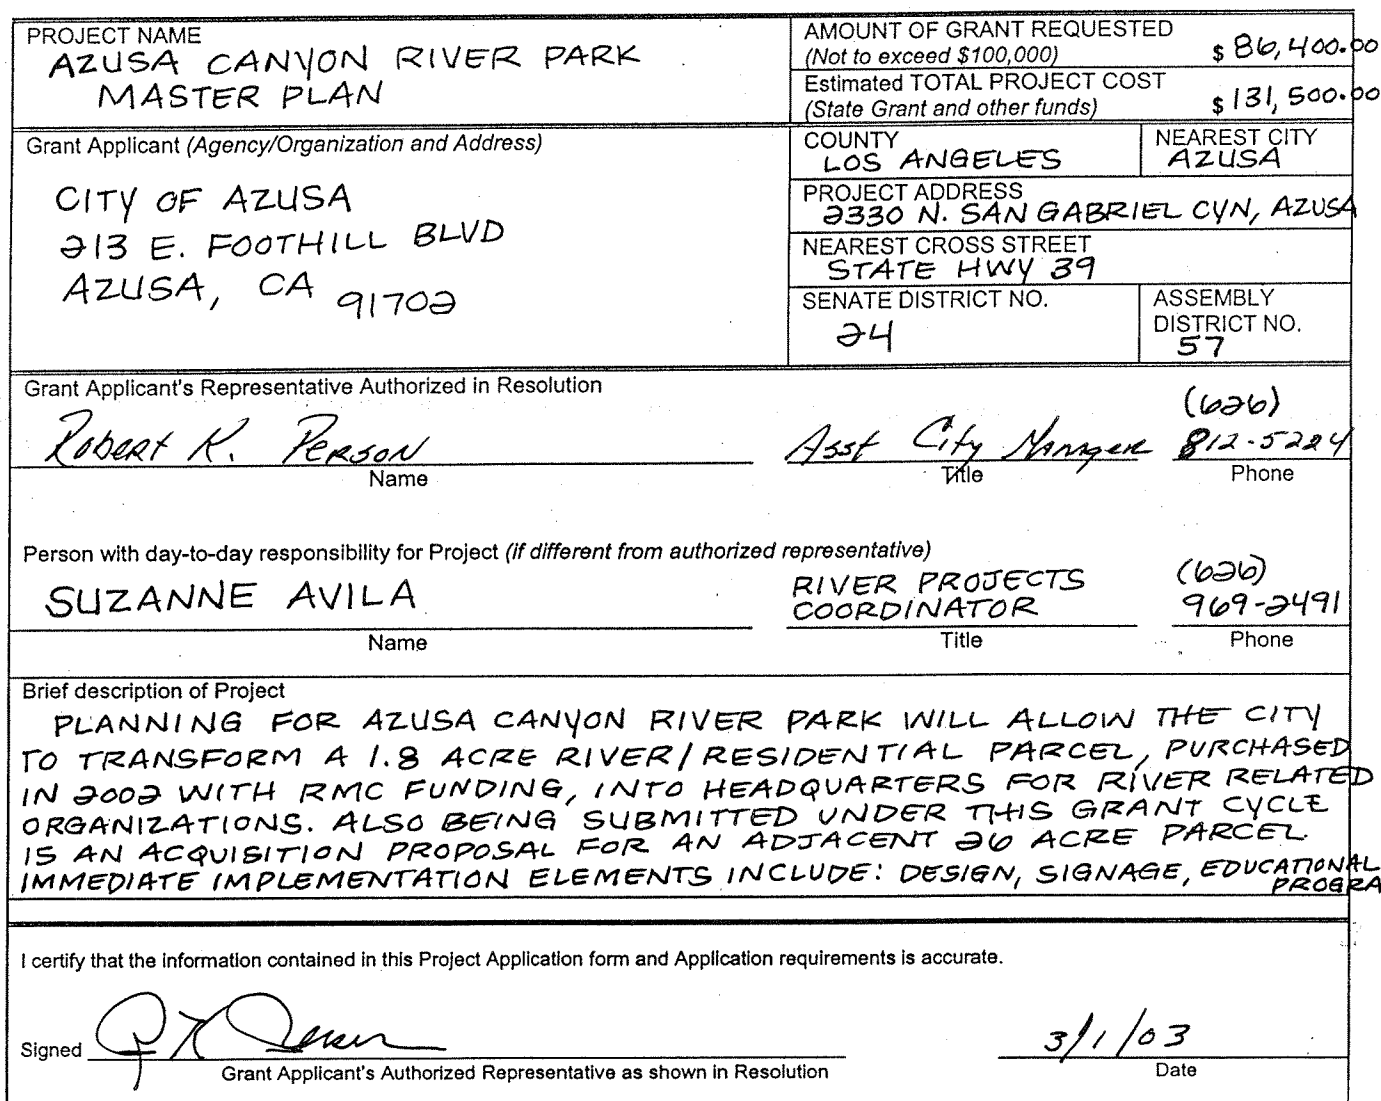 PROJECT NAME
AZUSA CANYON RIVER PARK
MASTER PLAN
AMOUNT OF GRANT REQUESTED
(Not to exceed $100,000) $ 86,400.00
Estimated TOTAL PROJECT COST
(State Grant and other funds) $ 131,500.00
Grant Applicant (Agency/Organization and Address)
CITY OF AZUSA
213 E. FOOTHILL BLVD
AZUSA, CA 91702
COUNTY
LOS ANGELES
NEAREST CITY
AZUSA
PROJECT ADDRESS
2330 N. SAN GABRIEL CYN, AZUSA
NEAREST CROSS STREET
STATE HWY 39
SENATE DISTRICT NO.
24
ASSEMBLY
DISTRICT NO.
57
Grant Applicant's Representative Authorized in Resolution
Robert K. Person Asst City Manager (626)
812-5224
Name Title Phone
Person with day-to-day responsibility for Project (if different from authorized representative)
SUZANNE AVILA
RIVER PROJECTS
COORDINATOR
(626)
969-2491
Name Title Phone
Brief description of Project
PLANNING FOR AZUSA CANYON RIVER PARK WILL ALLOW THE CITY
TO TRANSFORM A 1.8 ACRE RIVER/RESIDENTIAL PARCEL, PURCHASED
IN 2002 WITH RMC FUNDING, INTO HEADQUARTERS FOR RIVER RELATED
ORGANIZATIONS. ALSO BEING SUBMITTED UNDER THIS GRANT CYCLE
IS AN ACQUISITION PROPOSAL FOR AN ADJACENT 26 ACRE PARCEL
IMMEDIATE IMPLEMENTATION ELEMENTS INCLUDE: DESIGN, SIGNAGE, EDUCATIONAL
PROGRA
I certify that the information contained in this Project Application form and Application requirements is accurate.
Signed
3/1/03
Grant Applicant's Authorized Representative as shown in Resolution Date